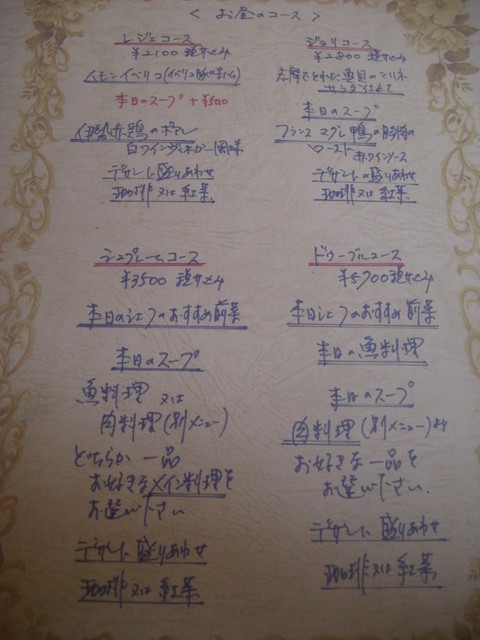 < お昼のコース >
レジェコース
¥2100 税サ込み
ハモンイベリコ(イベリコ豚の生ハム)
本日のスープ +¥500
伊勢赤鶏のポワレ
白ワインビネガー風味
デザート盛りあわせ
珈琲又は紅茶
ジョリコース
¥2800 税サ込み
志摩でとれた魚貝のマリネ
サラダ仕立て
本日のスープ
フランス マグレ鴨の胸肉の
ロースト 赤ワインソース
デザートの盛りあわせ
珈琲又は紅茶
シュプレームコース
¥3500 税サ込み
本日のシェフのおすすめ前菜
本日のスープ
魚料理 又は
肉料理(別メニュー)
どちらか一品
お好きなメイン料理を
お選び下さい
デザート盛りあわせ
珈琲又は紅茶
ドゥーブルコース
¥5,700 税サ込み
本日シェフのおすすめ前菜
本日の魚料理
本日のスープ
肉料理(別メニュー)より
お好きな一品を
お選び下さい
デザート盛りあわせ
珈琲又は紅茶